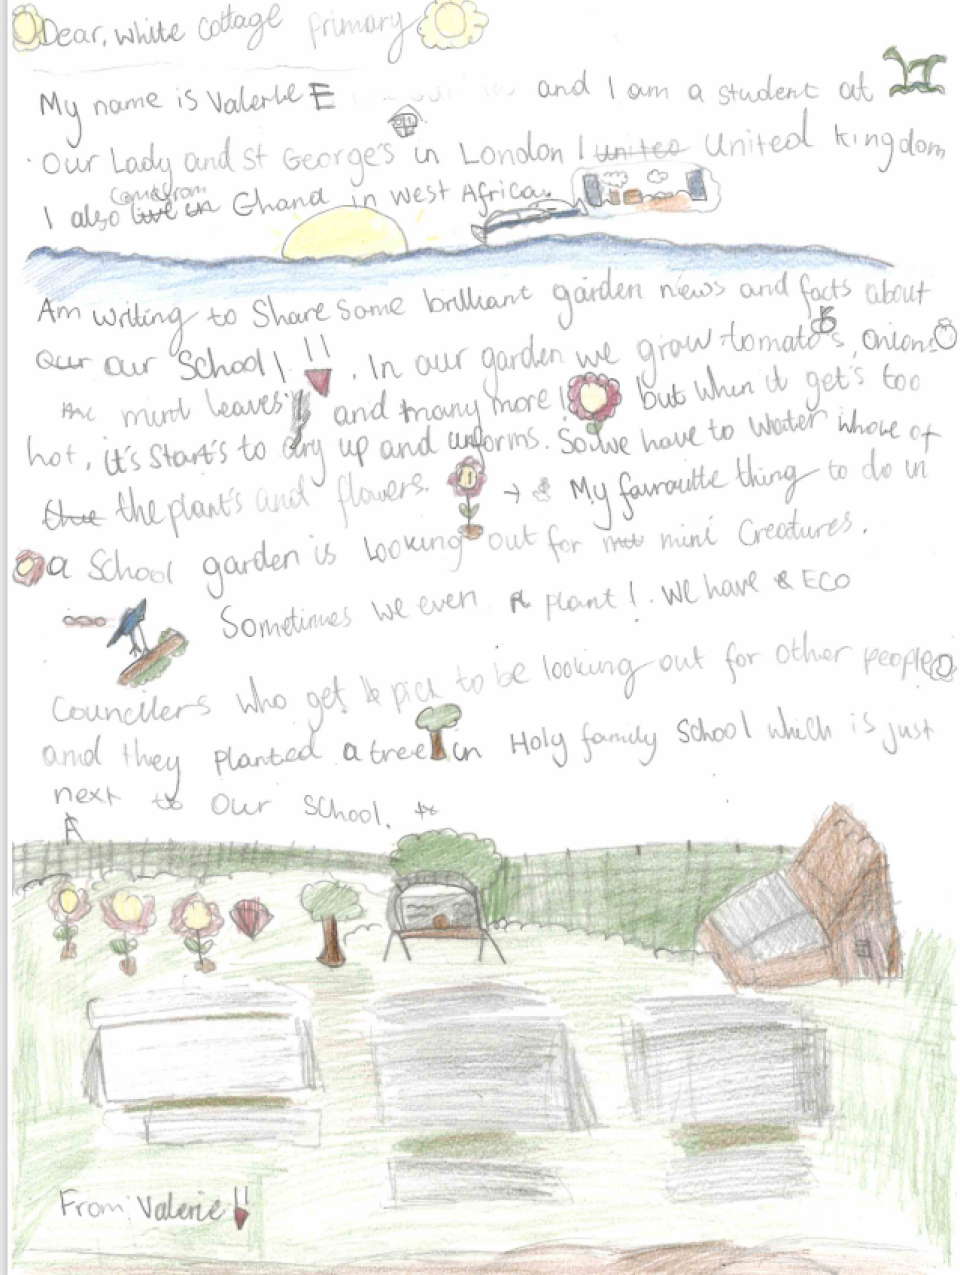 Dear, White Cottage Primary
My name is Valerie E and I am a student at
Our Lady and St George's in London ! united United kingdom
I also live in come from Ghana in West Africa.
Am writing to Share some brilliant garden news and facts about
our our School! !! . In our garden we grow tomato's, onions
mint leaves and many more! but when it get's too
hot, it's start's to dry up and unforms. So we have to water whole of
the plant's and flowers. My favourite thing to do in
a School garden is looking out for mini Creatures.
Sometimes we even plant!. We have ECO
Councllers who get pick to be looking out for other people
and they planted a tree in Holy family School which is just
next to our school.
From: Valerie!!